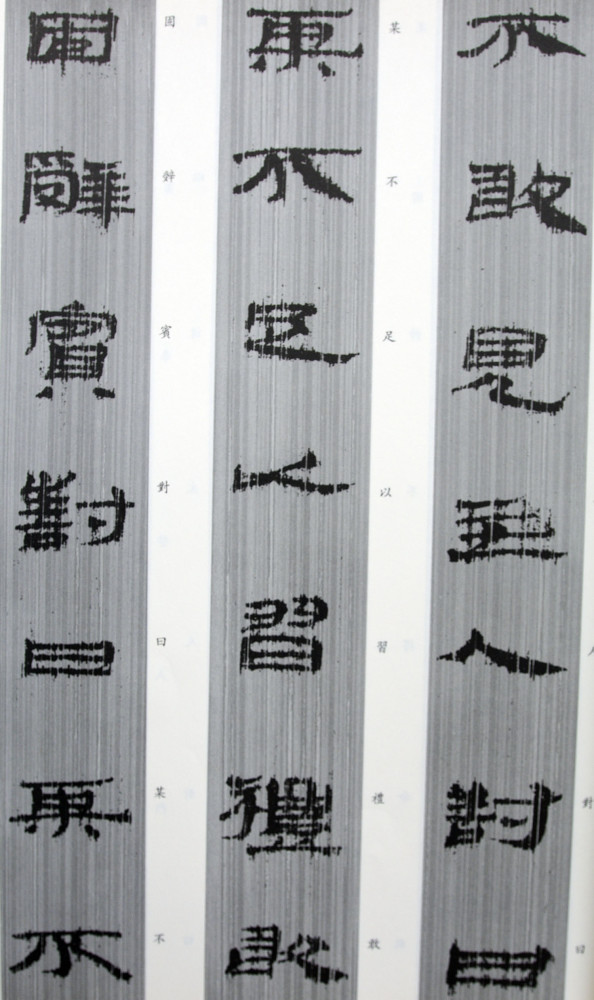 人對曰
不敢見主人對曰
某不足以習禮敢
某不足以習禮敢
固辤賓對曰某不
固辤賓對曰某不